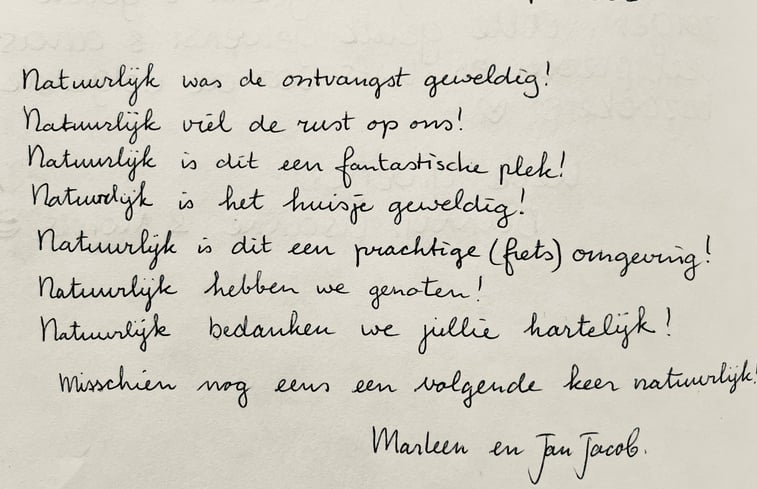 Natuurlijk was de ontvangst geweldig!
Natuurlijk viel de rust op ons!
Natuurlijk is dit een fantastische plek!
Natuurlijk is het huisje geweldig!
Natuurlijk is dit een prachtige (fiets) omgeving!
Natuurlijk hebben we genoten!
Natuurlijk bedanken we jullie hartelijk!
Misschien nog eens een volgende keer natuurlijk!
Marleen en Jan Jacob.